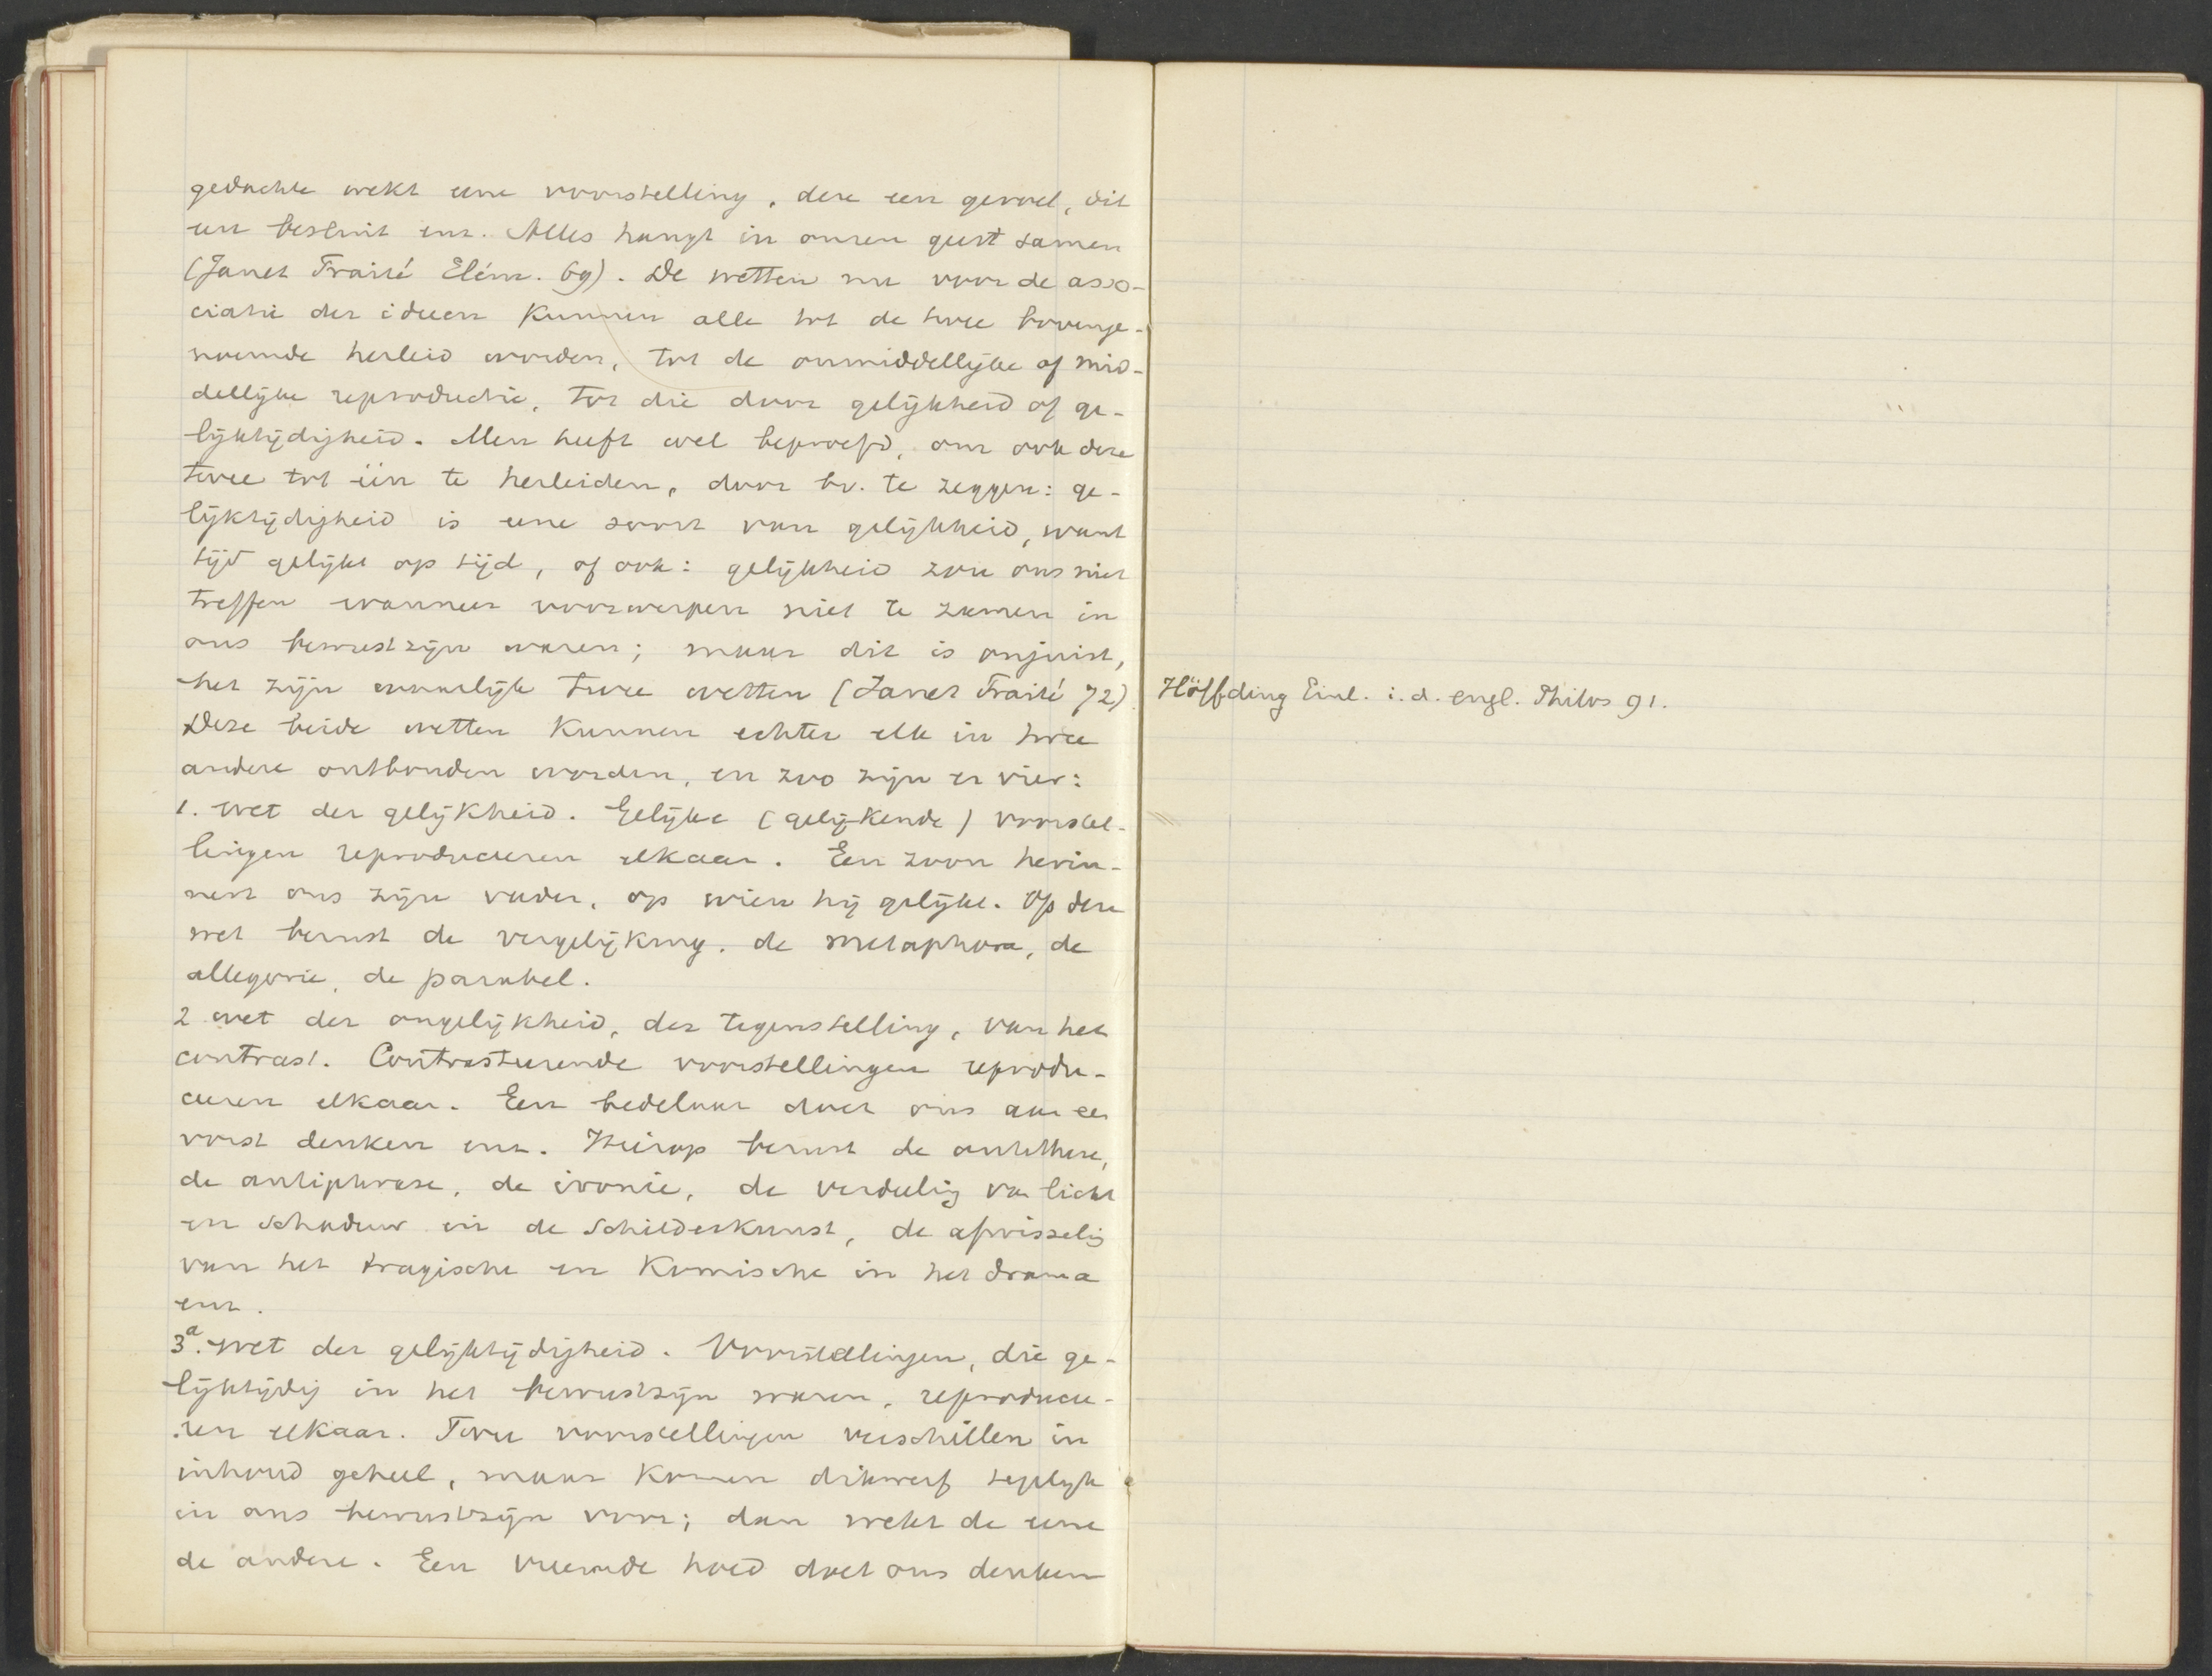 gedachte wekt eene voorstelling, deze een gevoel, dit
een besluit enz. Alles hangt in onzen geest samen
(Janet Traité Elém. 69). De wetten nu voor de asso-
ciatie der ideeen kunnen alle tot de twee bovenge-
noemde herleid worden, tot de onmiddellijke of mid-
dellijke reproductie, tot die door gelijkheid of ge-
lijktijdigheid. Men heeft wel beproefd, om ook deze
twee tot één te herleiden, door bv. te zeggen: ge-
lijktijdigheid is eene soort van gelijkheid, want
tijd gelijkt op tijd, of ook: gelijkheid zou ons niet
treffen wanneer voorwerpen niet te zamen in
ons bewustzijn waren; maar dit is onjuist,
het zijn waarlijk twee wetten (Janet Traité 72)
Deze beide wetten kunnen echter elk in twee
andere ontbonden worden, en zoo zijn er vier:
1. wet der gelijkheid. Gelijke (gelijkende) voorstel-
lingen reproduceeren elkaar. Een zoon herin-
nert ons zijn vader, op wien hij gelijkt. Op deze
wet berust de vergelijking, de metaphora, de
allegorie, de parabel.
2 wet der ongelijkheid, der tegenstelling, van het
contrast. Contrasteerende voorstellingen reprodu-
ceeren elkaar. Een bedelaar doet ons aan een
vorst denken enz. Hierop berust de antithese,
de antiphrase, de ironie, de verdeeling van licht
en schaduw in de schilderkunst, de afwisseling
van het tragische en komische in het drama
enz.
3a. wet der gelijktijdigheid. Voorstellingen, die ge-
lijktijdig in het bewustzijn waren, reproducee-
ren elkaar. Twee voorstellingen verschillen in
inhoud geheel, maar komen dikwerf tegelijk
in ons bewustzijn voor; dan wekt de eene
de andere. Een vreemde hoed doet ons denken
Höffding Einl. i. d. engl. Philos 91.